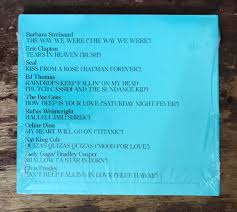 Barbara Streisand
THE WAY WE WERE ('THE WAY WE WERE')
Eric Clapton
TEARS IN HEAVEN ('RUSH')
Seal
KISS FROM A ROSE ('BATMAN FOREVER')
BJ Thomas
RAINDROPS KEEP FALLIN' ON MY HEAD
('BUTCH CASSIDI AND THE SUNDANCE KID')
The Bee Gees
HOW DEEP IS YOUR LOVE ('SATURDAY NIGHT FEVER')
Rufus Weinwright
HALLELUJAH ('SHREK')
Celine Dion
MY HEART WILL GO ON ('TITANIC')
Nat King Cole
QUIZAS QUIZAS QUIZAS ('MOOD FOR LOVE')
Lady Gaga/ Bradley Cooper
SHALLOW ('A STAR IS BORN')
Elvis Presley
CAN'T HELP FALLING IN LOVE ('BLUE HAWAII')